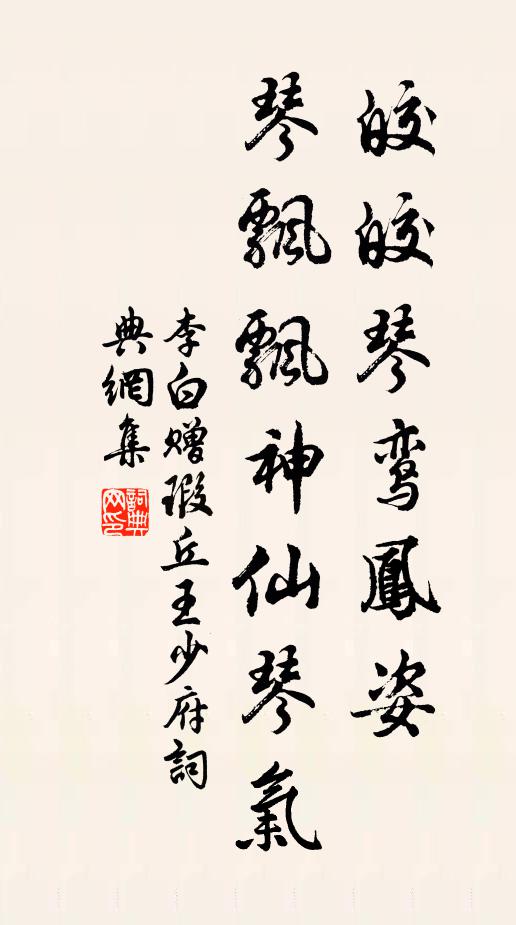 皎皎琴鸾鳳姿
琴飄飄神仙琴氣
李白赠瑕丘王少府詞
典網集
詞典网印